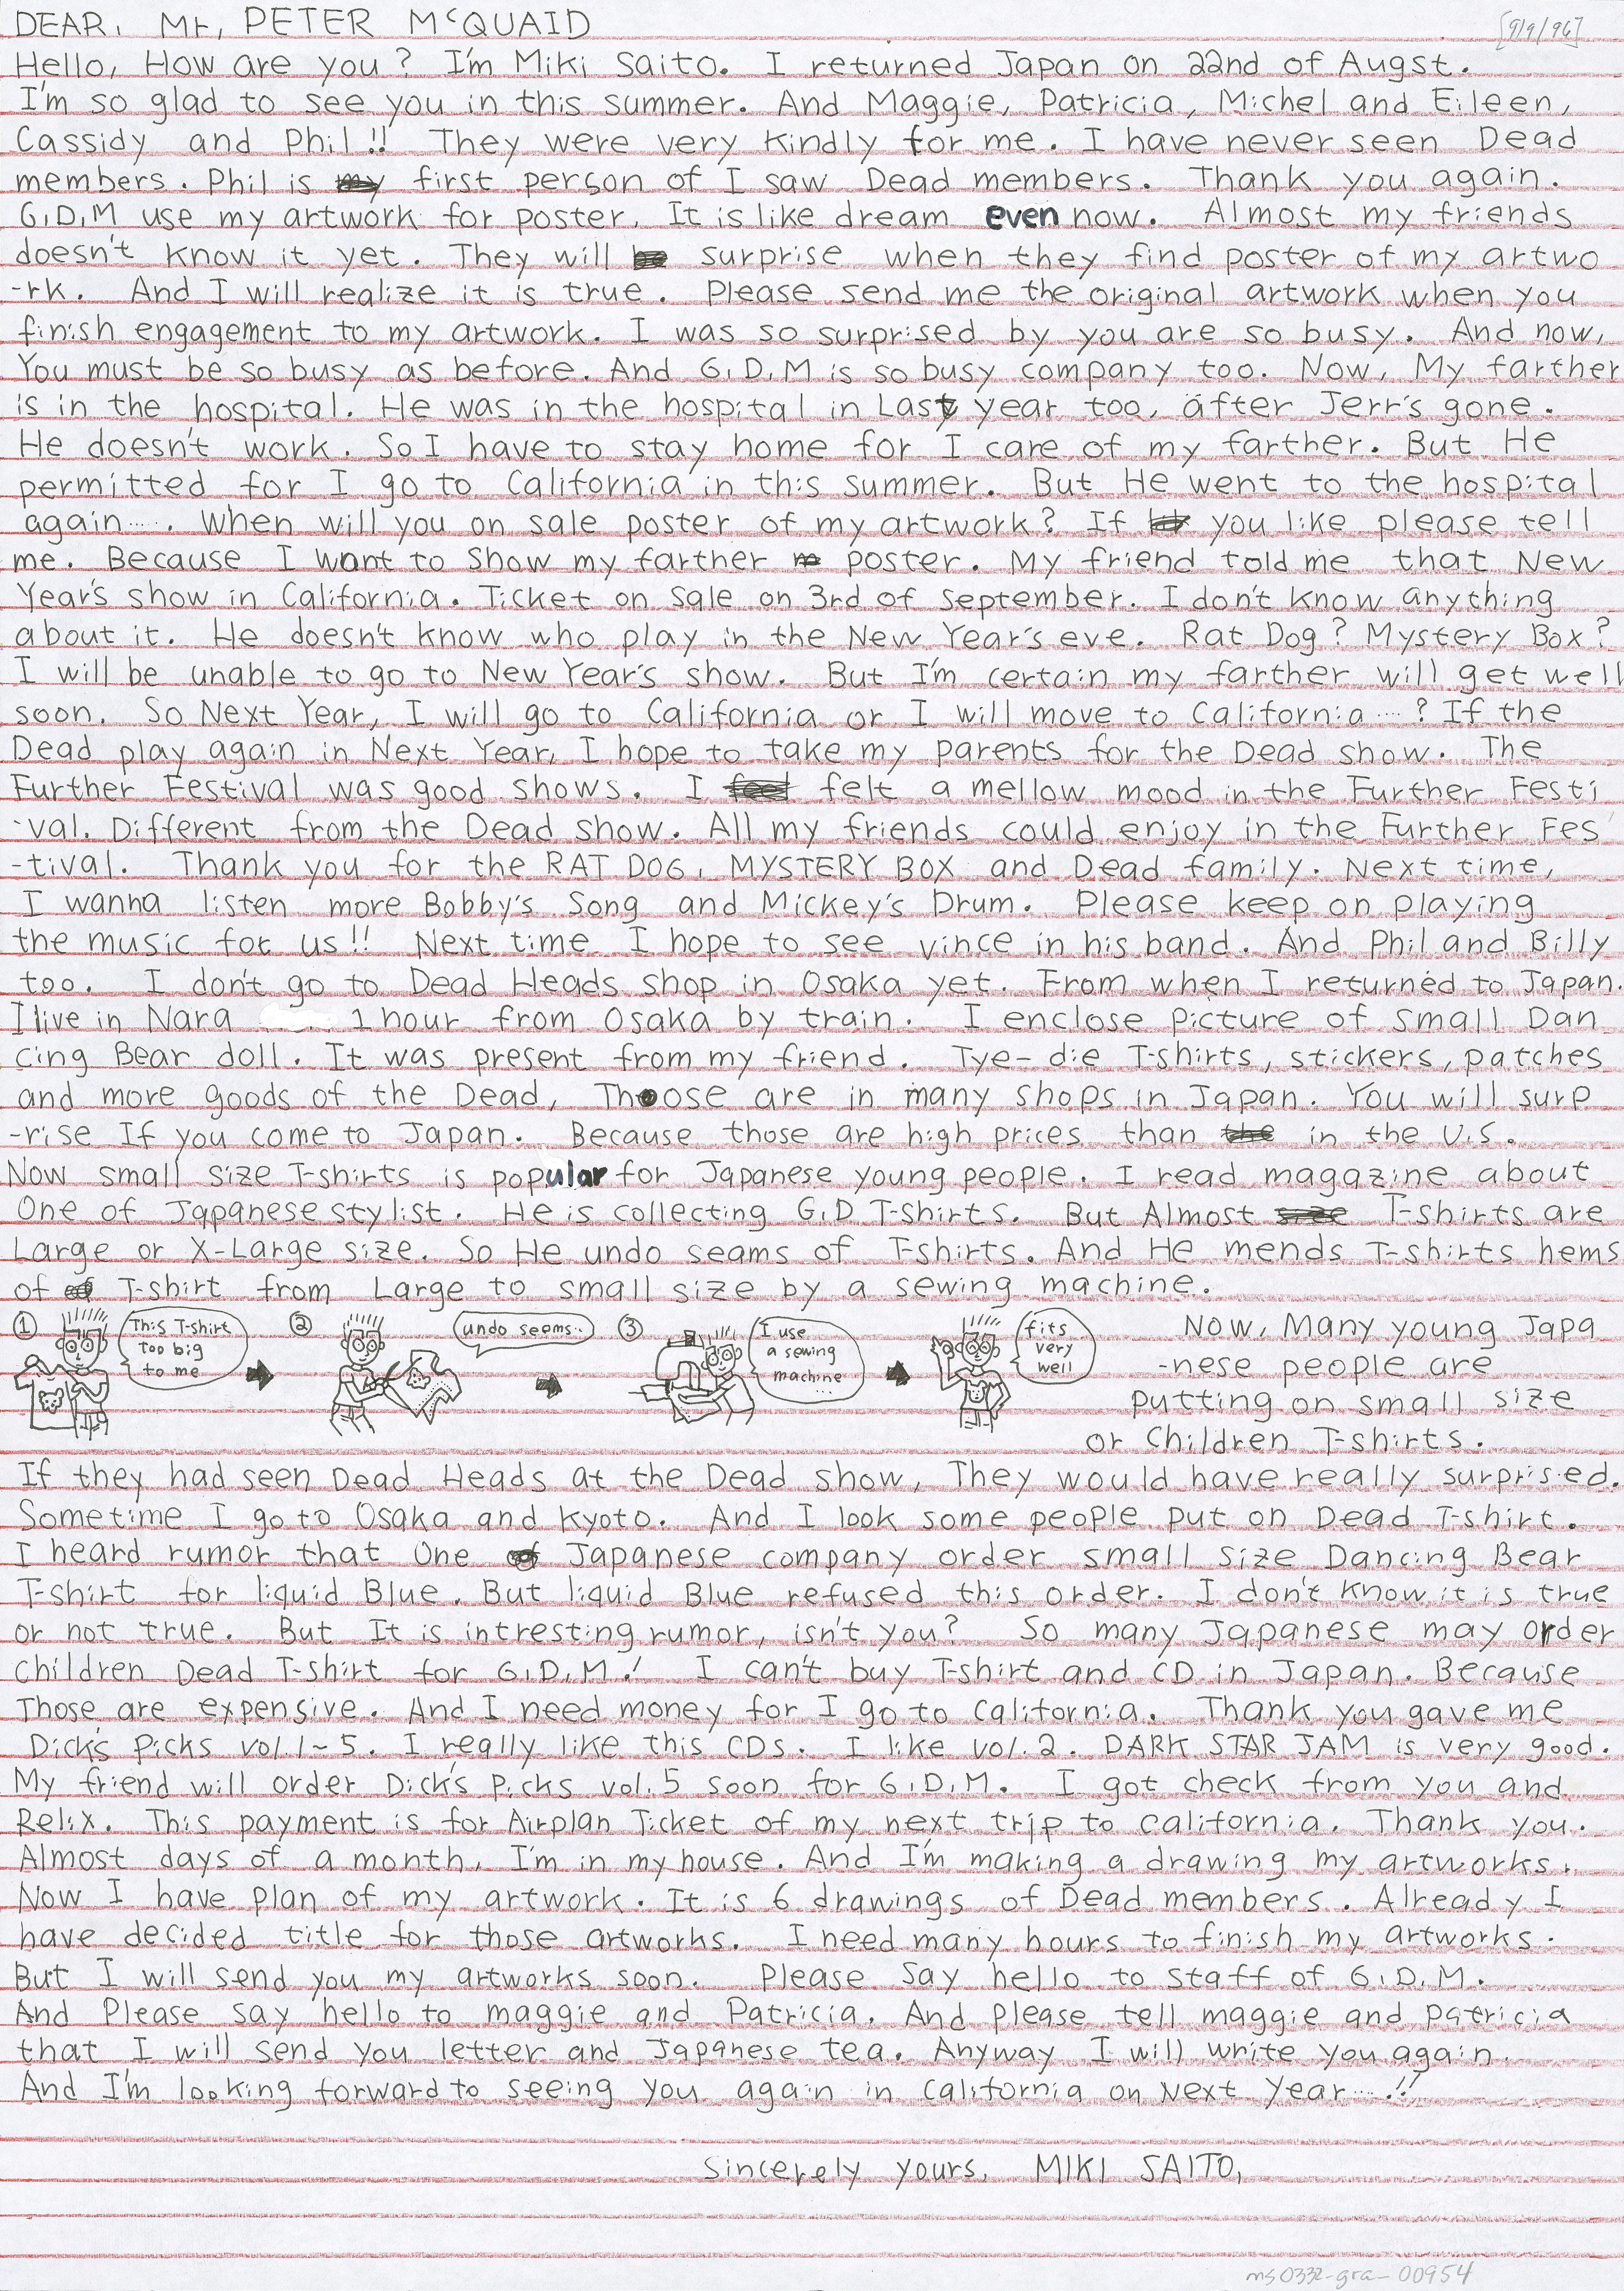 DEAR, Mr, PETER McQUAID
[9/9/96]
Hello, How are you? I'm Miki Saito. I returned Japan on 22nd of Augst.
I'm so glad to see you in this summer. And Maggie, Patricia, Michel and Eileen,
Cassidy and Phil!! They were very kindly for me. I have never seen Dead
members. Phil is my first person of I saw Dead members. Thank you again.
G,D,M use my artwork for poster. It is like dream even now. Almost my friends
doesn't know it yet. They will be surprise when they find poster of my artwo
-rk. And I will realize it is true. Please send me the original artwork when you
finish engagement to my artwork. I was so surprised by you are so busy. And now,
You must be so busy as before. And G,D,M is so busy company too. Now, My farther
is in the hospital. He was in the hospital in Last year too, after Jerr's gone.
He doesn't work. So I have to stay home for I care of my farther. But He
permitted for I go to California in this summer. But He went to the hospital
again..... When will you on sale poster of my artwork? If you like please tell
me. Because I want to show my farther poster. My friend told me that New
Year's show in California. Ticket on sale on 3rd of September. I don't know anything
about it. He doesn't know who play in the New Year's eve. Rat Dog? Mystery Box?
I will be unable to go to New Year's show. But I'm certain my farther will get well
soon. So Next Year, I will go to California or I will move to California ....? If the
Dead play again in Next Year, I hope to take my parents for the Dead show. The
Further Festival was good shows. I feel felt a mellow mood in the Further Festi
-val. Different from the Dead show. All my friends could enjoy in the Further Fes
-tival. Thank you for the RAT DOG, MYSTERY BOX and Dead family. Next time,
I wanna listen more Bobby's Song and Mickey's Drum. Please keep on playing
the music for us!! Next time I hope to see vince in his band. And Phil and Billy
too. I don't go to Dead Heads shop in Osaka yet. From when I returned to Japan.
I live in Nara 1 hour from Osaka by train. I enclose picture of small Dan
cing Bear doll. It was present from my friend. Tye-die T-shirts, stickers, patches
and more goods of the Dead, Thoose are in many shops in Japan. You will surp
-rise If you come to Japan. Because those are high prices than the in the U.S.
Now small size T-shirts is popular for Japanese young people. I read magazine about
One of Japanese stylist. He is collecting G,D T-shirts. But Almost size T-shirts are
Large or X-Large size. So He undo seams of T-shirts. And He mends T-shirts hems
of of T-shirt from Large to small size by a sewing machine.
① This T-shirt
too big
to me
② undo seems..
③ I use
a sewing
machine
...
fits
very
well
Now, Many young Japa
-nese people are
putting on small size
or Children T-shirts.
If they had seen Dead Heads at the Dead show, They would have really surprised.
Sometime I go to Osaka and Kyoto. And I look some people put on Dead T-shirt.
I heard rumor that One of Japanese company order small size Dancing Bear
T-shirt for liquid Blue. But liquid Blue refused this order. I don't know it is true
or not true. But It is intresting rumor, isn't you? So many Japanese may order
Children Dead T-shirt for G,D,M! I can't buy T-shirt and CD in Japan. Because
Those are expensive. And I need money for I go to California. Thank you gave me
Dick's Picks vol.1~5. I really like this CDs. I like vol.2. DARK STAR JAM is very good.
My friend will order Dick's Picks vol.5 soon for G,D,M. I got check from you and
Relix. This payment is for Airplan Ticket of my next trip to California. Thank you.
Almost days of a month, I'm in my house. And I'm making a drawing my artworks.
Now I have plan of my artwork. It is 6 drawings of Dead members. Already I
have decided title for those artworks. I need many hours to finish my artworks.
But I will send you my artworks soon. Please say hello to staff of G,D,M.
And Please say hello to maggie and Patricia. And please tell maggie and patricia
that I will send you letter and Japanese tea. Anyway I will write you again.
And I'm looking forward to seeing you again in California on Next Year ....!!
Sincerely yours, MIKI SAITO,
ms0332-gra-00954